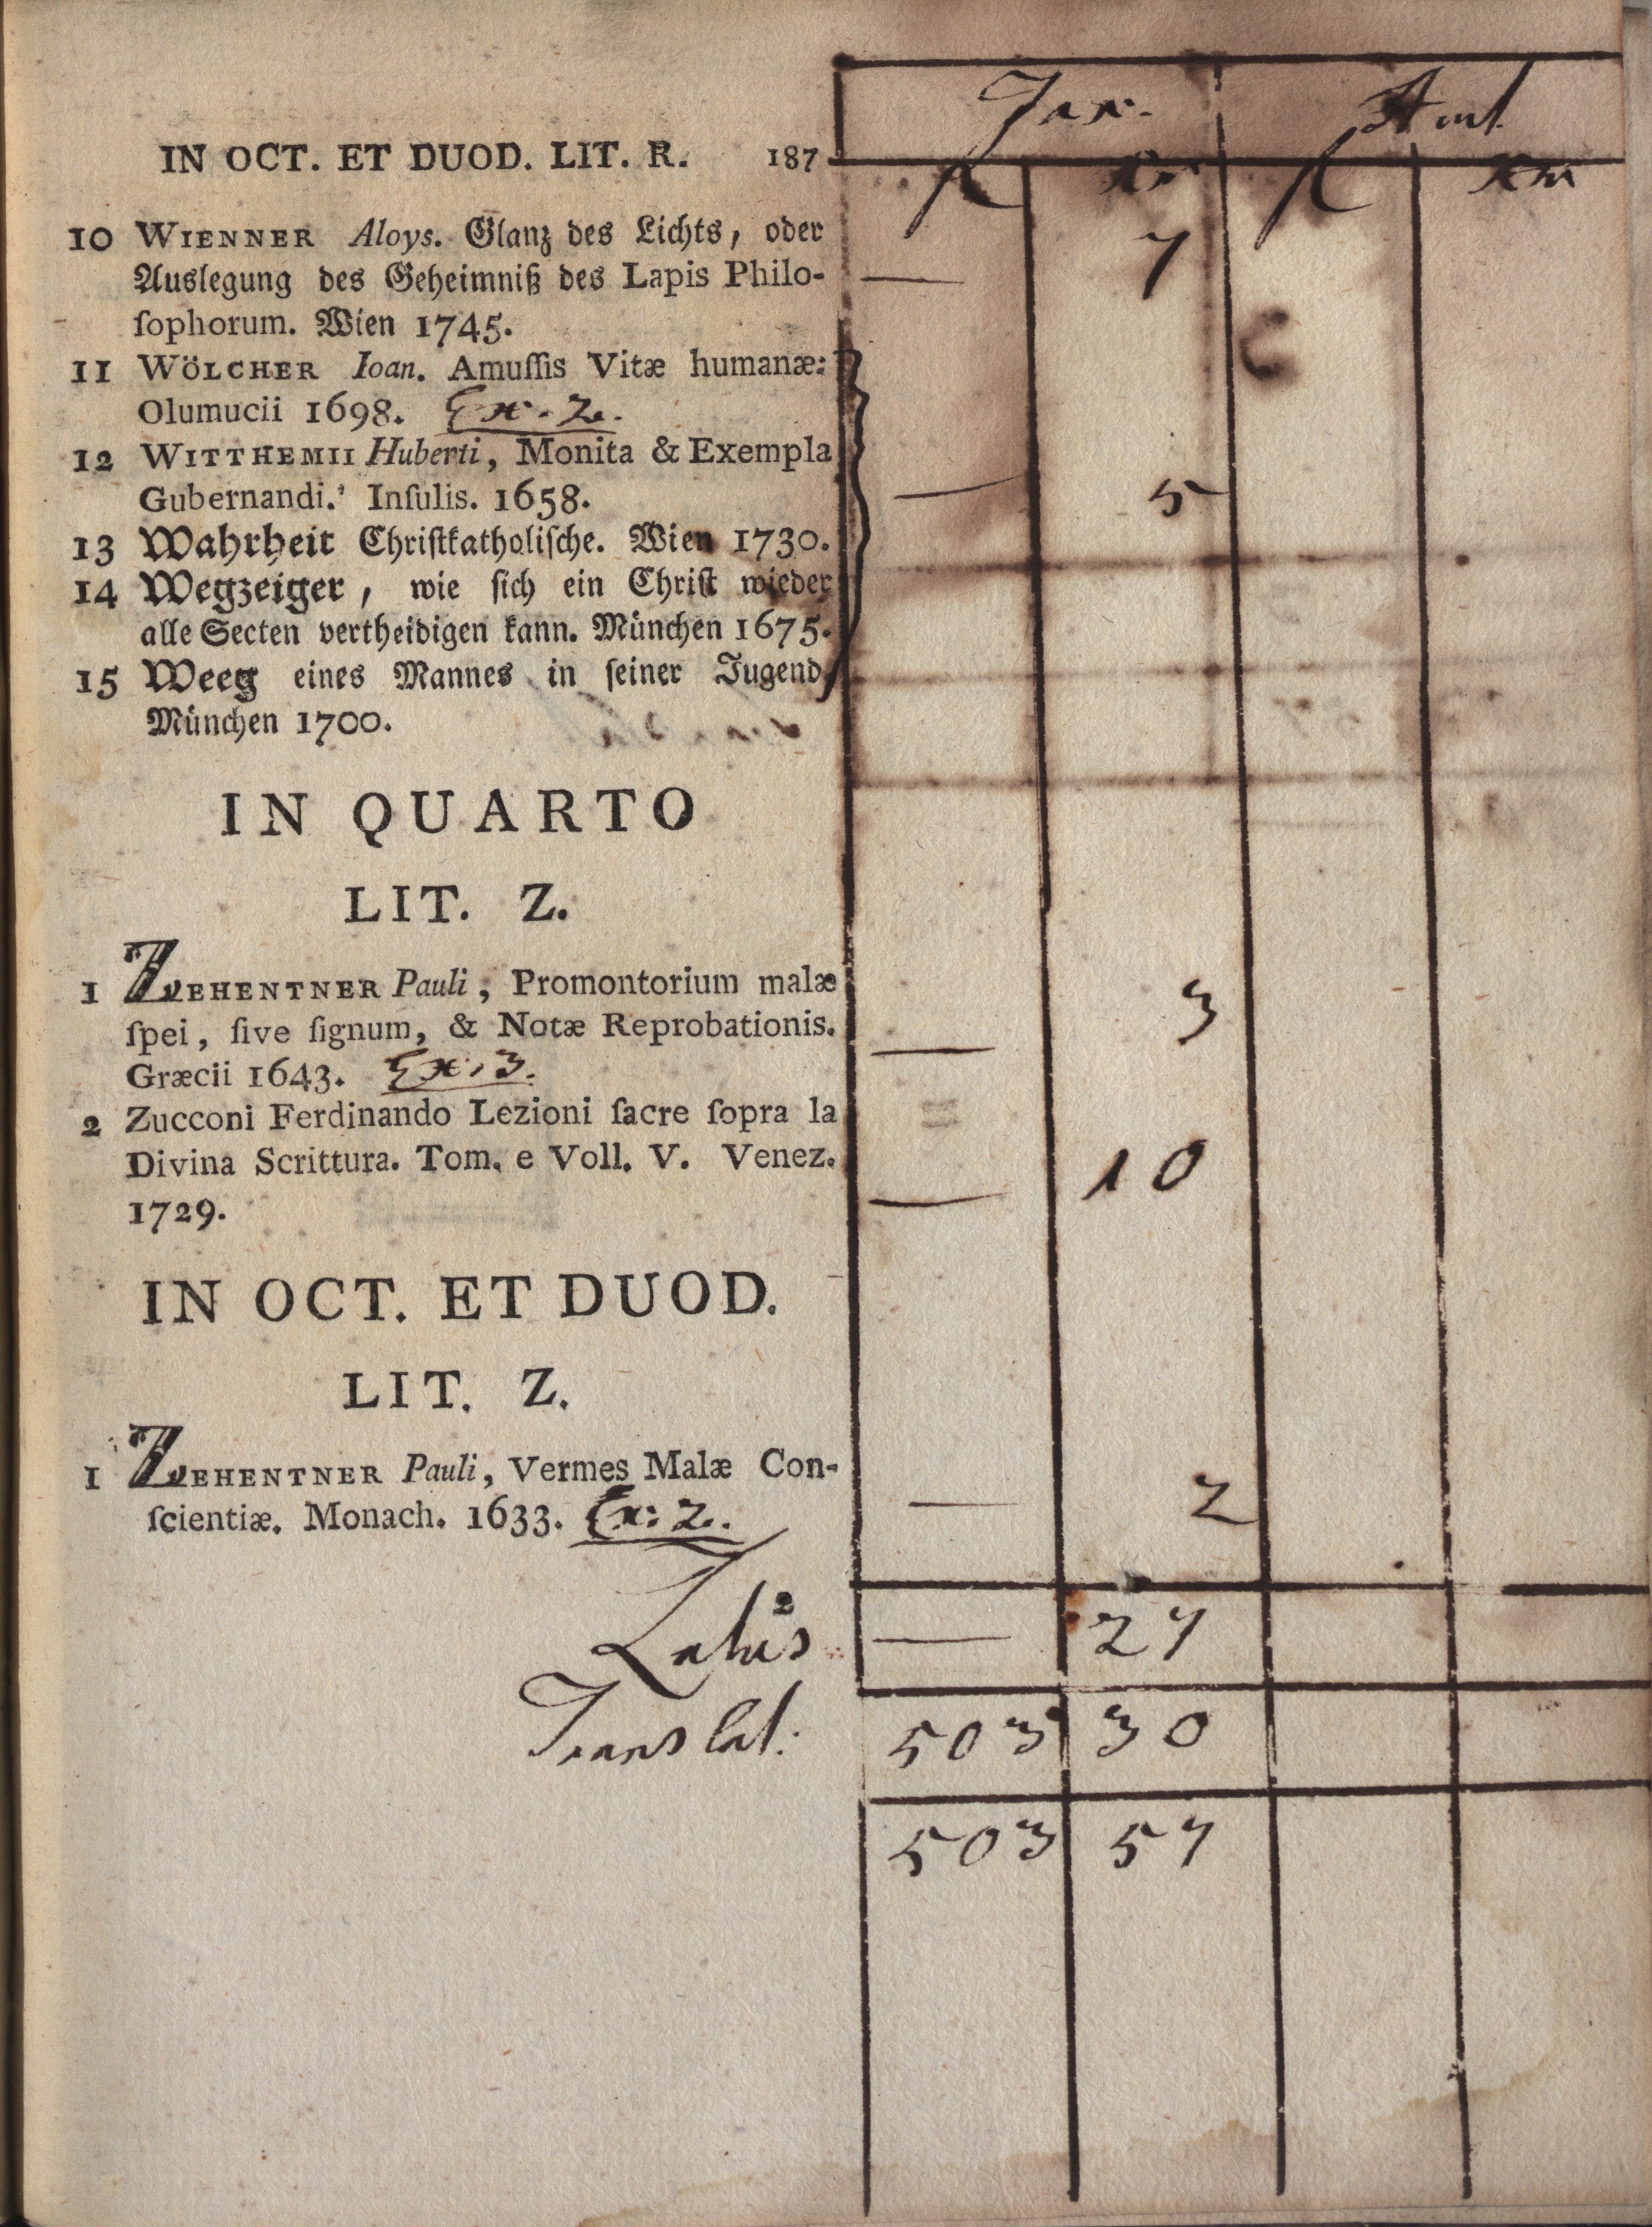 IN OCT. ET DUOD. LIT. R. 187
Tax.
fl
10 WIENNER Aloys. Glanz des Lichts, oder
Auslegung des Geheimniß des Lapis Philo-
ſophorum. Wien 1745.
— 7
11 WÖLCHER Ioan. Amuſſis Vitæ humanæ:
Olumucii 1698. Ex. 2.
12 WITTHEMII Huberti, Monita & Exempla
Gubernandi. Inſulis. 1658.
— 5
13 Wahrheit Chriſtkatholiſche. Wien 1730.
14 Wegzeiger, wie ſich ein Chriſt wieder
alle Secten vertheidigen kann. München 1675.
15 Weeg eines Mannes in ſeiner Jugend,
München 1700.
IN QUARTO
LIT. Z.
1 ZEHENTNER Pauli, Promontorium malæ
ſpei, ſive ſignum, & Notæ Reprobationis.
Græcii 1643. Ex. 3.
— 3
2 Zucconi Ferdinando Lezioni ſacre ſopra la
Divina Scrittura. Tom. e Voll. V. Venez.
1729.
— 10
IN OCT. ET DUOD.
LIT. Z.
1 ZEHENTNER Pauli, Vermes Malæ Con-
ſcientiæ. Monach. 1633. Ex: 2.
— 2
Latus — 27
Translat: 503 30
503 57